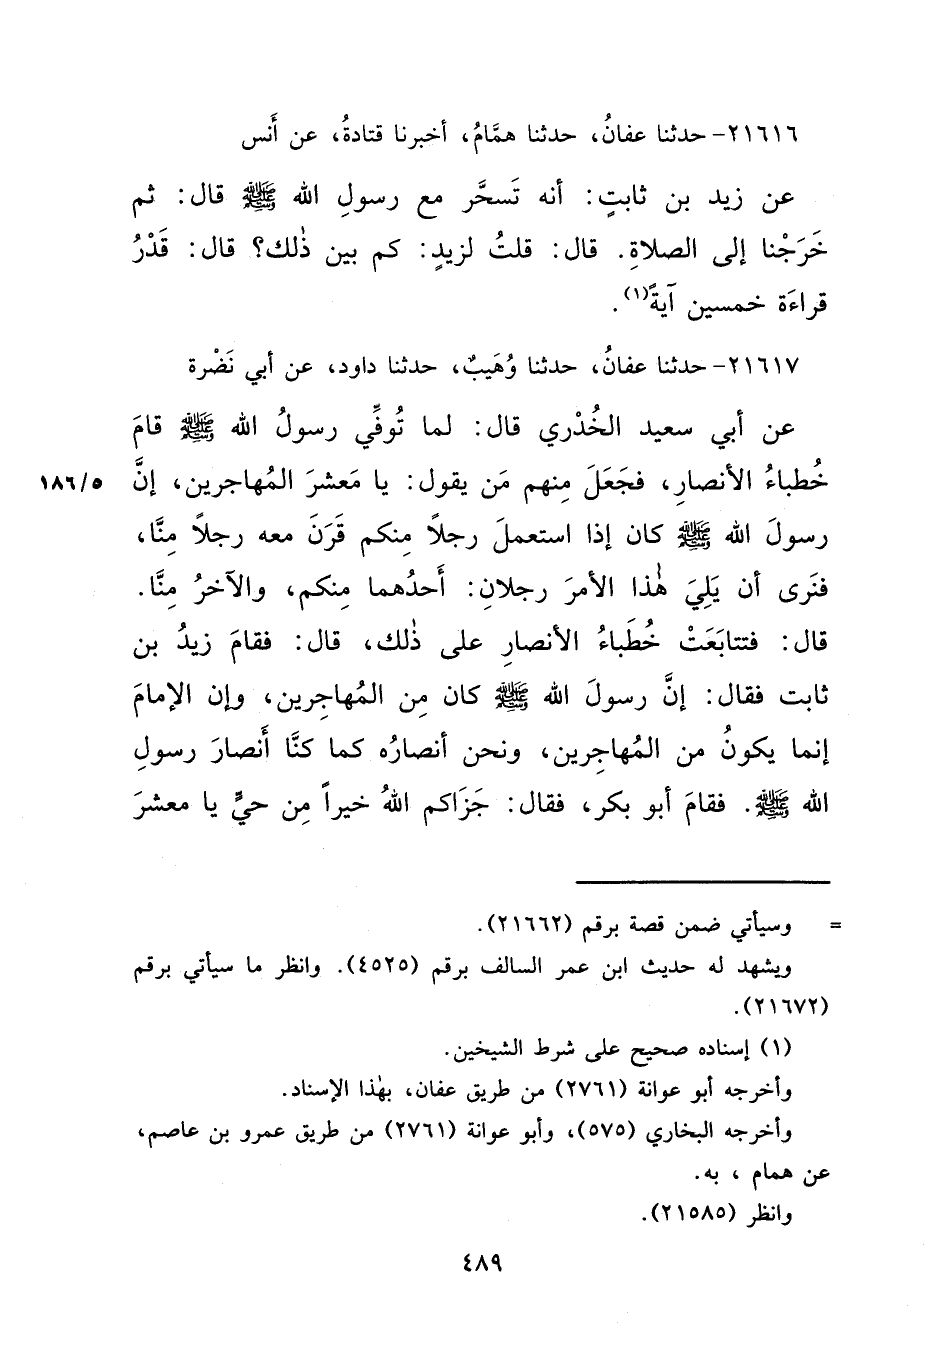 ٢١٦١٦- حدثنا عفانُ، حدثنا همَّامُ، أخبرنا قتادةُ، عن أَنس
عن زيد بن ثابتٍ: أنه تَسحَّر مع رسولِ الله ﷺ قال: ثم
خَرَجْنا إلى الصلاةِ. قال: قلتُ لزيدٍ: كم بين ذٰلك؟ قال: قَدْرُ
قراءَة خمسين آيةً(١).
٢١٦١٧- حدثنا عفانُ، حدثنا وُهَيبٌ، حدثنا داود، عن أبي نَضْرة
عن أبي سعيد الخُدْري قال: لما تُوفِّي رسولُ الله ﷺ قامَ
خُطباءُ الأنصارِ، فجَعَلَ مِنهم مَن يقول: يا مَعشرَ المهاجرين، إنَّ
١٨٦/٥
رسولَ الله ﷺ كان إذا استعملَ رجلاً مِنكم قَرَنَ معه رجلاً مِنَّا،
فنَرى أن يَلِيَ هٰذا الأمرَ رجلانِ: أَحدُهما مِنكم، والآخرُ مِنَّا.
قال: فتتابَعَتْ خُطَباءُ الأنصارِ على ذٰلك، قال: فقامَ زيدُ بن
ثابت فقال: إنَّ رسولَ الله ﷺ كان مِن المُهاجِرين، وإن الإمامَ
إنما يكونُ من المُهاجِرين، ونحن أنصارُه كما كنَّا أَنصارَ رسولِ
الله ﷺ. فقامَ أبو بكر، فقال: جَزَاكم اللهُ خيراً مِن حيٍّ يا معشرَ
= وسيأتي ضمن قصة برقم (٢١٦٦٢).
ويشهد له حديث ابن عمر السالف برقم (٤٥٢٥). وانظر ما سيأتي برقم
(٢١٦٧٢).
(١) إسناده صحيح على شرط الشيخين.
وأخرجه أبو عوانة (٢٧٦١) من طريق عفان، بهٰذا الإسناد.
وأخرجه البخاري (٥٧٥)، وأبو عوانة (٢٧٦١) من طريق عمرو بن عاصم،
عن همام ، به.
وانظر (٢١٥٨٥).
٤٨٩